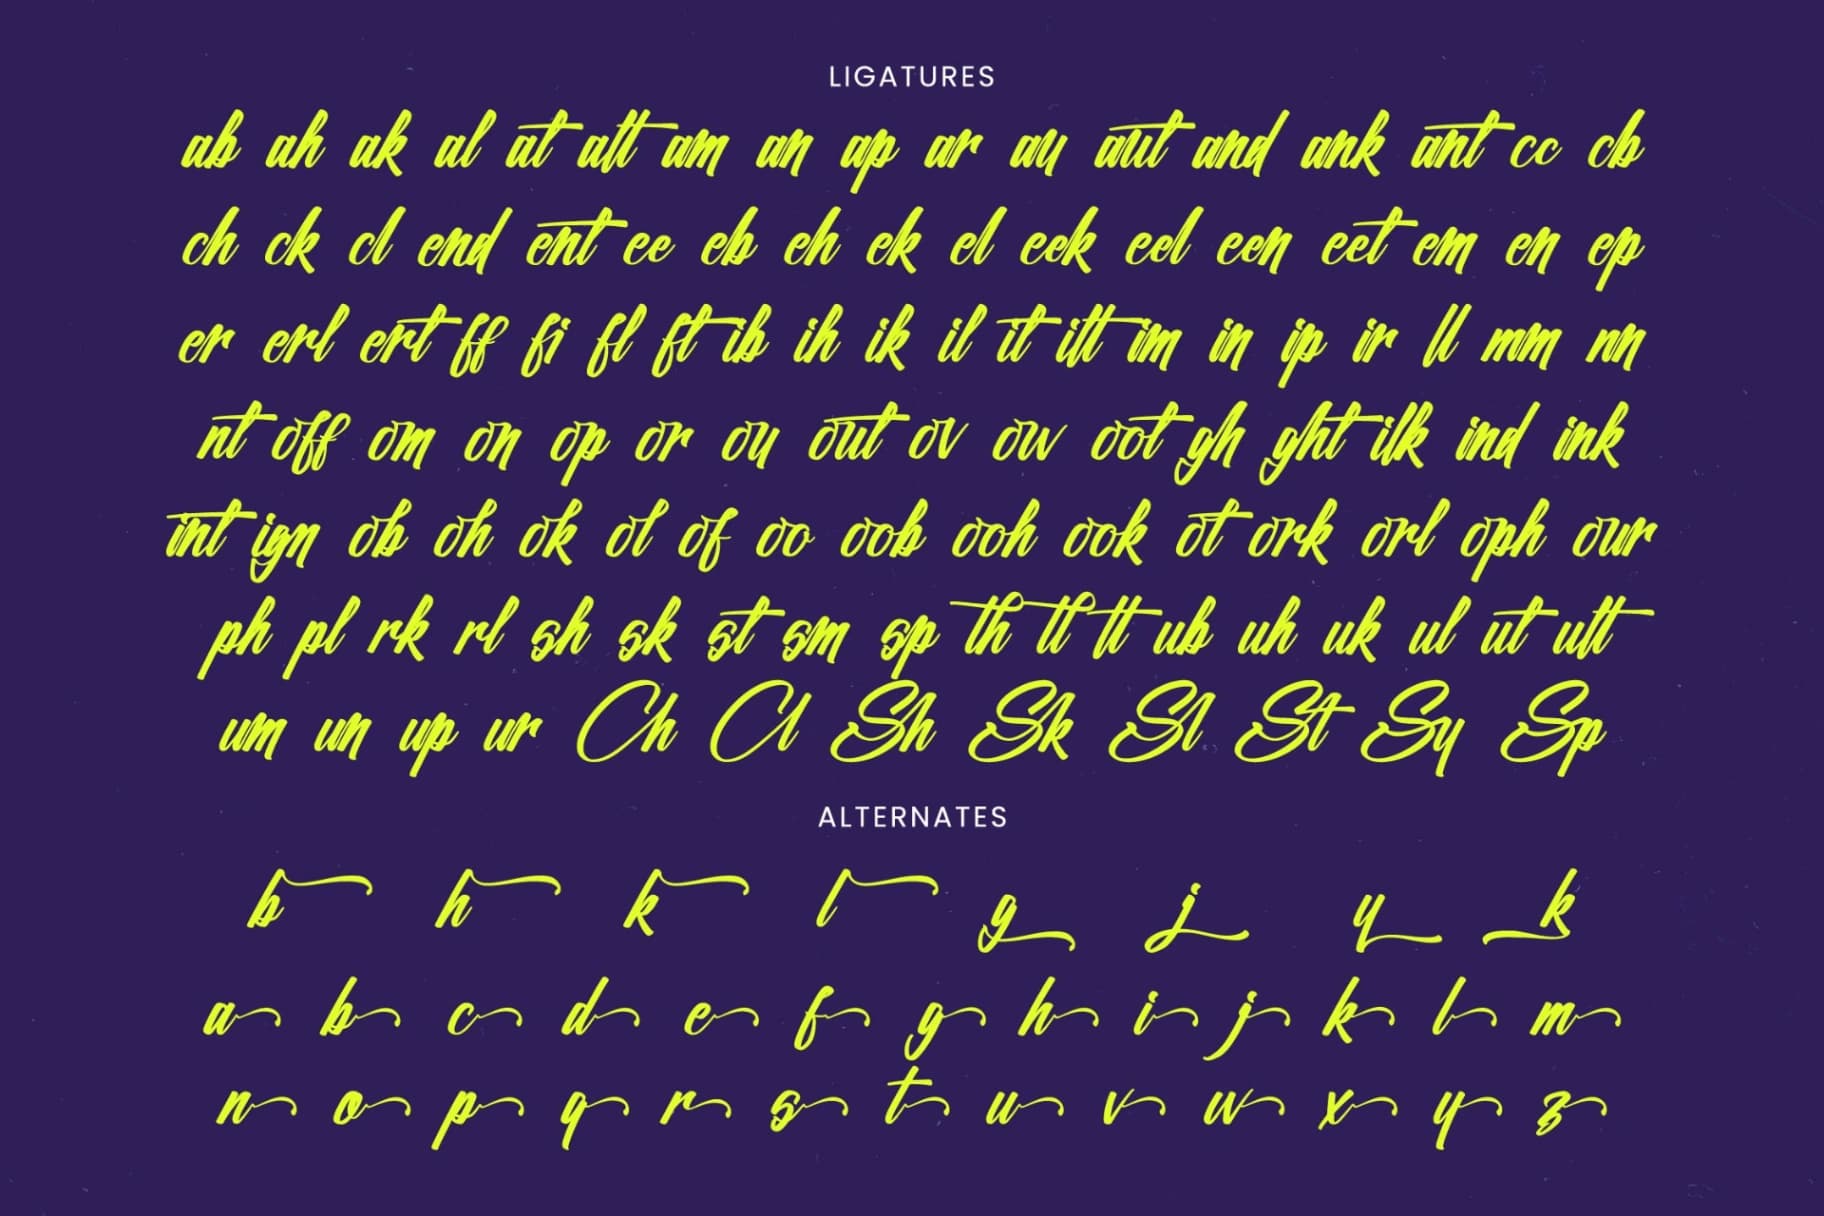 LIGATURES
ab ah ak al at att am an ap ar ay aut and ank ant cc cb
ch ck cl end ent ee eb eh ek el eek eel een eet em en ep
er erl ert ff fi fl ft ib ih ik il it itt im in ip ir ll mm nn
nt off om on op or oy out ov ow oot gh ght ilk ind ink
int ign ob oh ok ol of oo oob ooh ook ot ork orl oph our
ph pl rk rl sh sk st sm sp th tl tt ub uh uk ul ut utt
um un up ur Ch Cl Sh Sk Sl St Sy Sp
ALTERNATES
b h k l g j y k
a b c d e f g h i j k l m
n o p q r s t u v w x y z